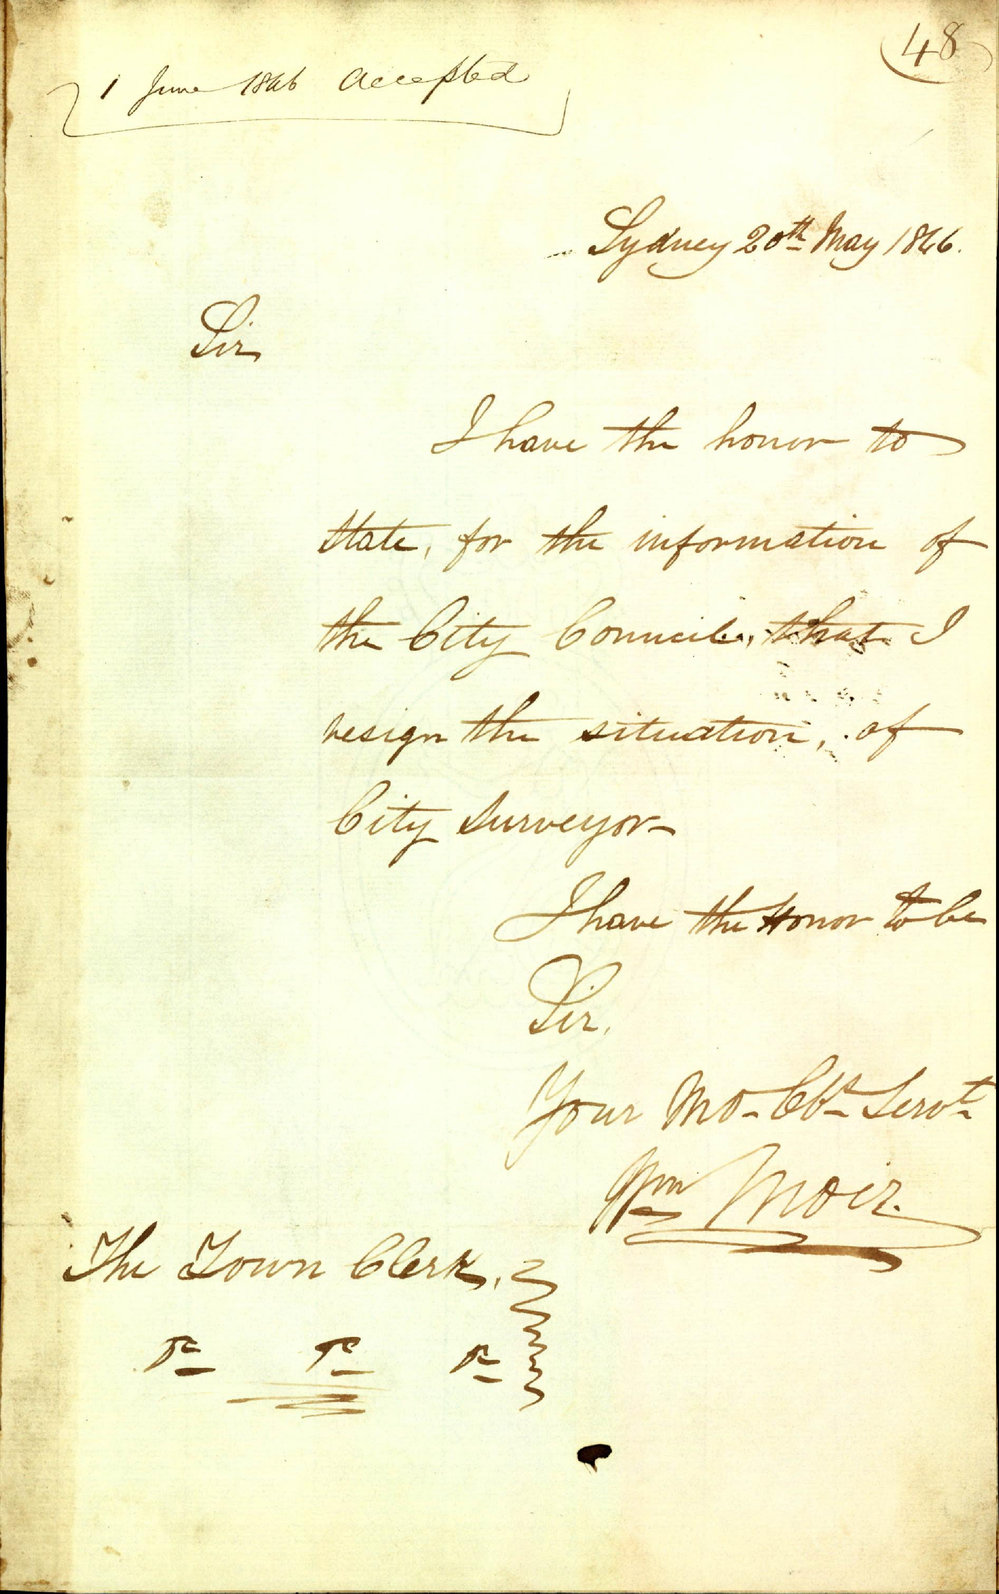 48
1 June 1846 Accepted
Sydney 20th May 1846.
Sir
I have the honor to
state, for the information of
the City Council, that I
resign the situation, of
City Surveyor-
I have the Honor to be
Sir,
Your Mo- Obt Servt
Wm Moir.
The Town Clerk,